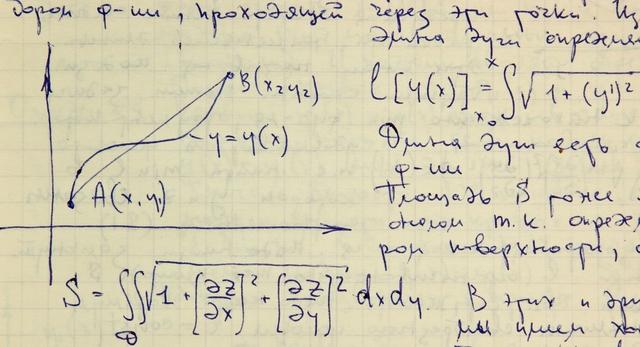 ф-ии, проходящей через эти точки. Из
Длина дуги определя
B(x₂y₂)
l[y(x)] = ∫ₓ₀ˣ √1+(y')²
y=y(x)
Длина дуги есть
ф-ии
A(x, y₁)
Площадь S тоже
т.к. опреде
поверхности,
S = ∬_D √1+[∂z/∂x]²+[∂z/∂y]² dxdy. В этих и
мы имеем